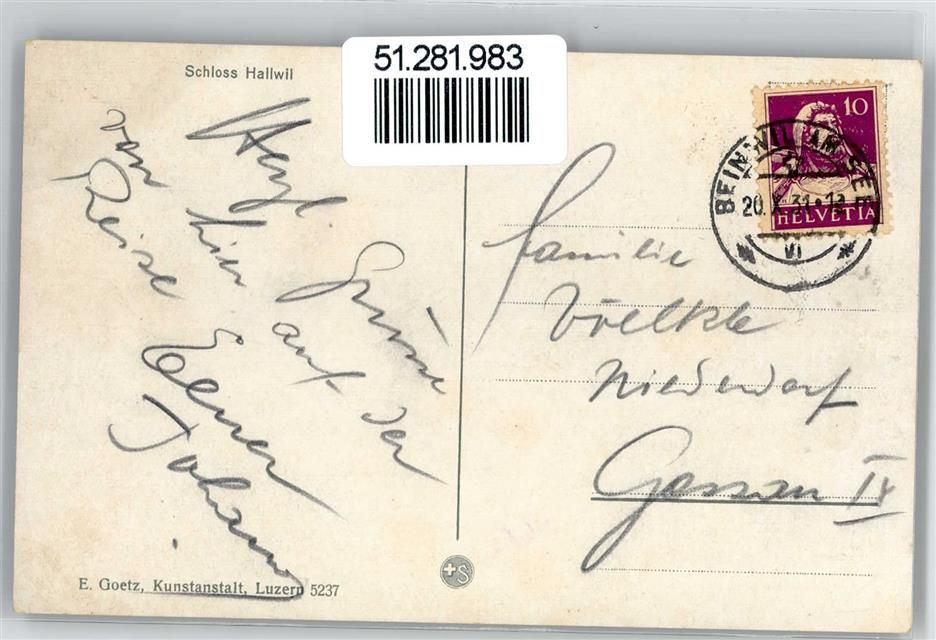 Schloss Hallwil
51.281.983
Herzl Grüsse
hier auf der
von Reise
Johann
10
HELVETIA
BEINWIL AM SEE
20.
31
VI
Familie
Völkle
Niederdorf
Gossau
E. Goetz, Kunstanstalt, Luzern 5237
S